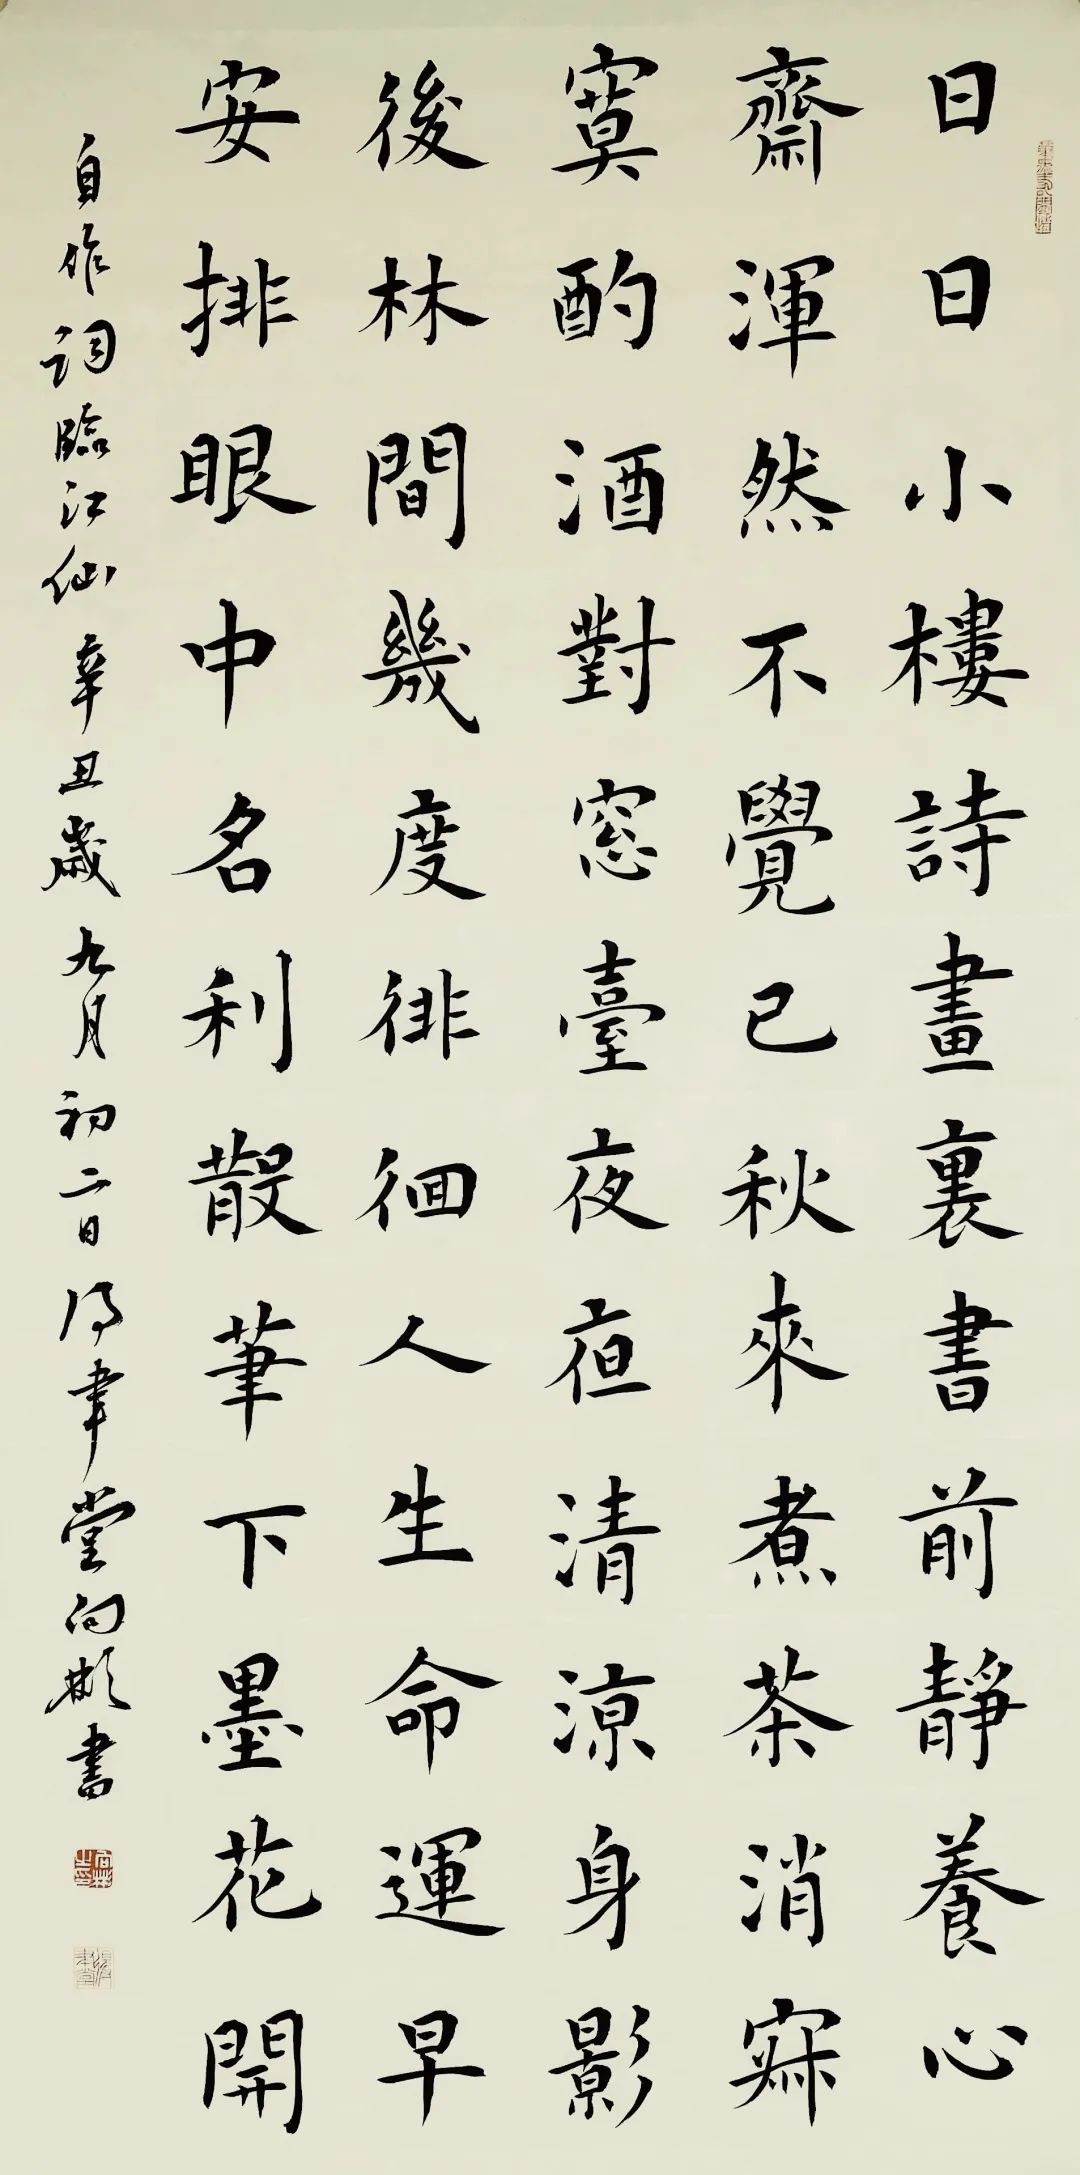 日日小樓詩畫裏書前靜養心
齋渾然不覺已秋來煮茶消寂
寞酌酒對窓臺夜夜清涼身影
後林間幾度徘徊人生命運早
安排眼中名利散筆下墨花開
自作詞臨江仙辛丑歲九月初二日得聿堂向彬書